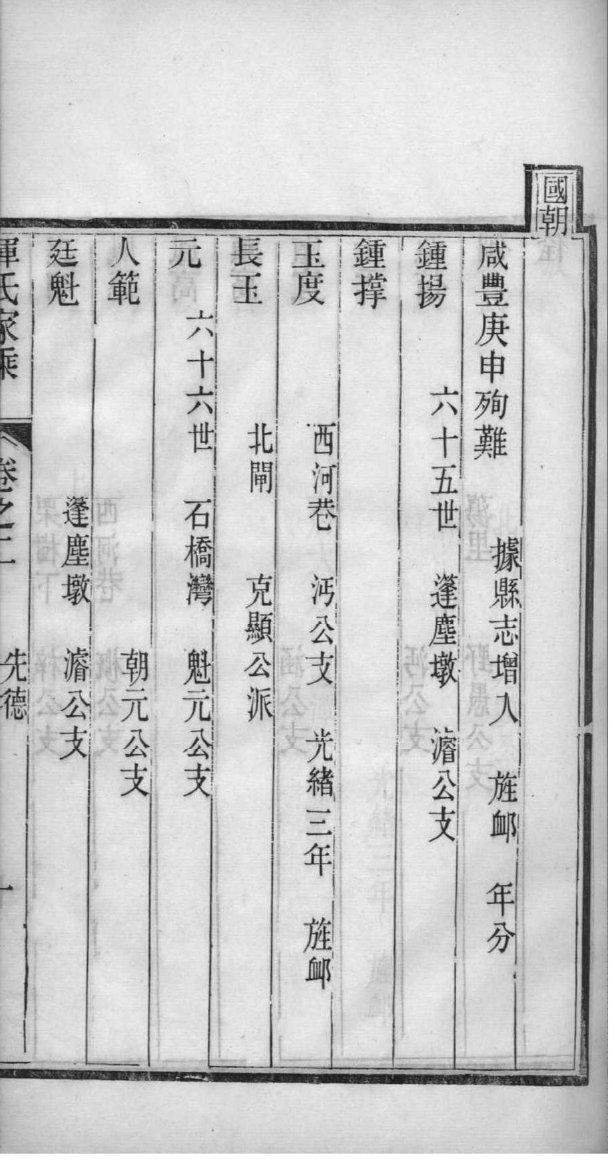 國朝
咸豐庚申殉難 據縣志增入 旌卹 年分
鍾揚 六十五世 蓬塵墩 濬公支
鍾撑
玉度 西河巷 沔公支 光緒三年 旌卹
長玉 北閘 克顯公派
元 六十六世 石橋灣 魁元公支
人範 朝元公支
廷魁 蓬塵墩 濬公支
惲氏家乘 卷之二 先德 一